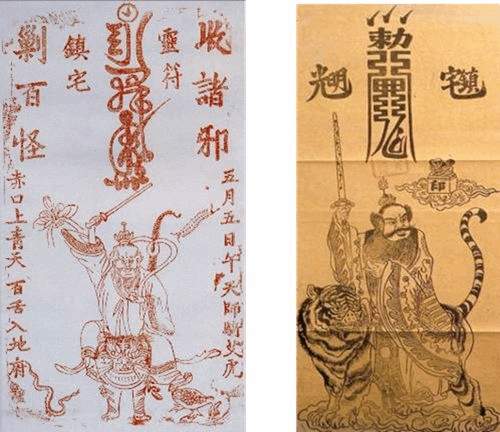 收諸邪
五月五日午天師騎艾虎
靈符
鎮宅
剿百怪
赤口上青天 百舌入地府
鎮宅
勅
明光
印